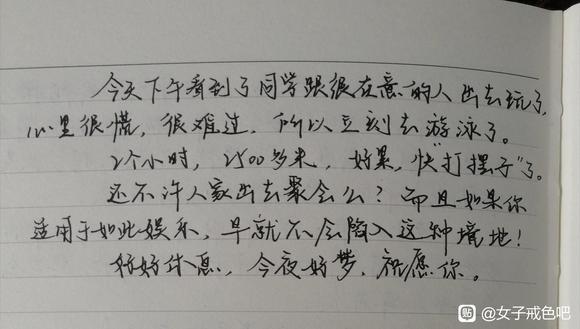 今天下午看到了同学跟很在意的人出去玩了，
心里很慌，很难过，所以立刻去游泳了。
2个小时，2500多米，好累，快"打摆子"了。
还不许人家出去聚会么？而且如果你
适用于如此娱乐，早就不会陷入这种境地！
好好休息，今夜好梦，祝愿你。
贴 @女子戒色吧